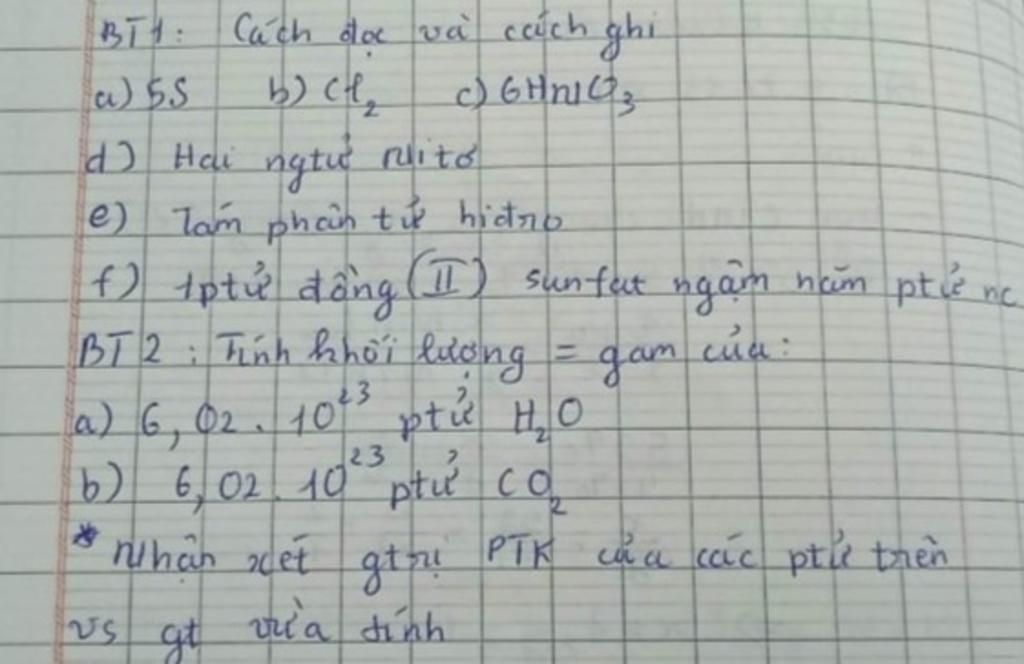 BT1: Cách đọc và cách ghi
a) 5S b) Cl₂ c) 6HNO₃
d) Hai ngtử Nitơ
e) Tám phân tử hiđrô
f) 1ptử đồng (II) sunfat ngậm năm ptử nc
BT2: Tính khối lượng = gam của:
a) 6,02.10²³ ptử H₂O
b) 6,02.10²³ ptử CO₂
* Nhận xét gtrị PTK của các ptử trên
vs gt vừa tính